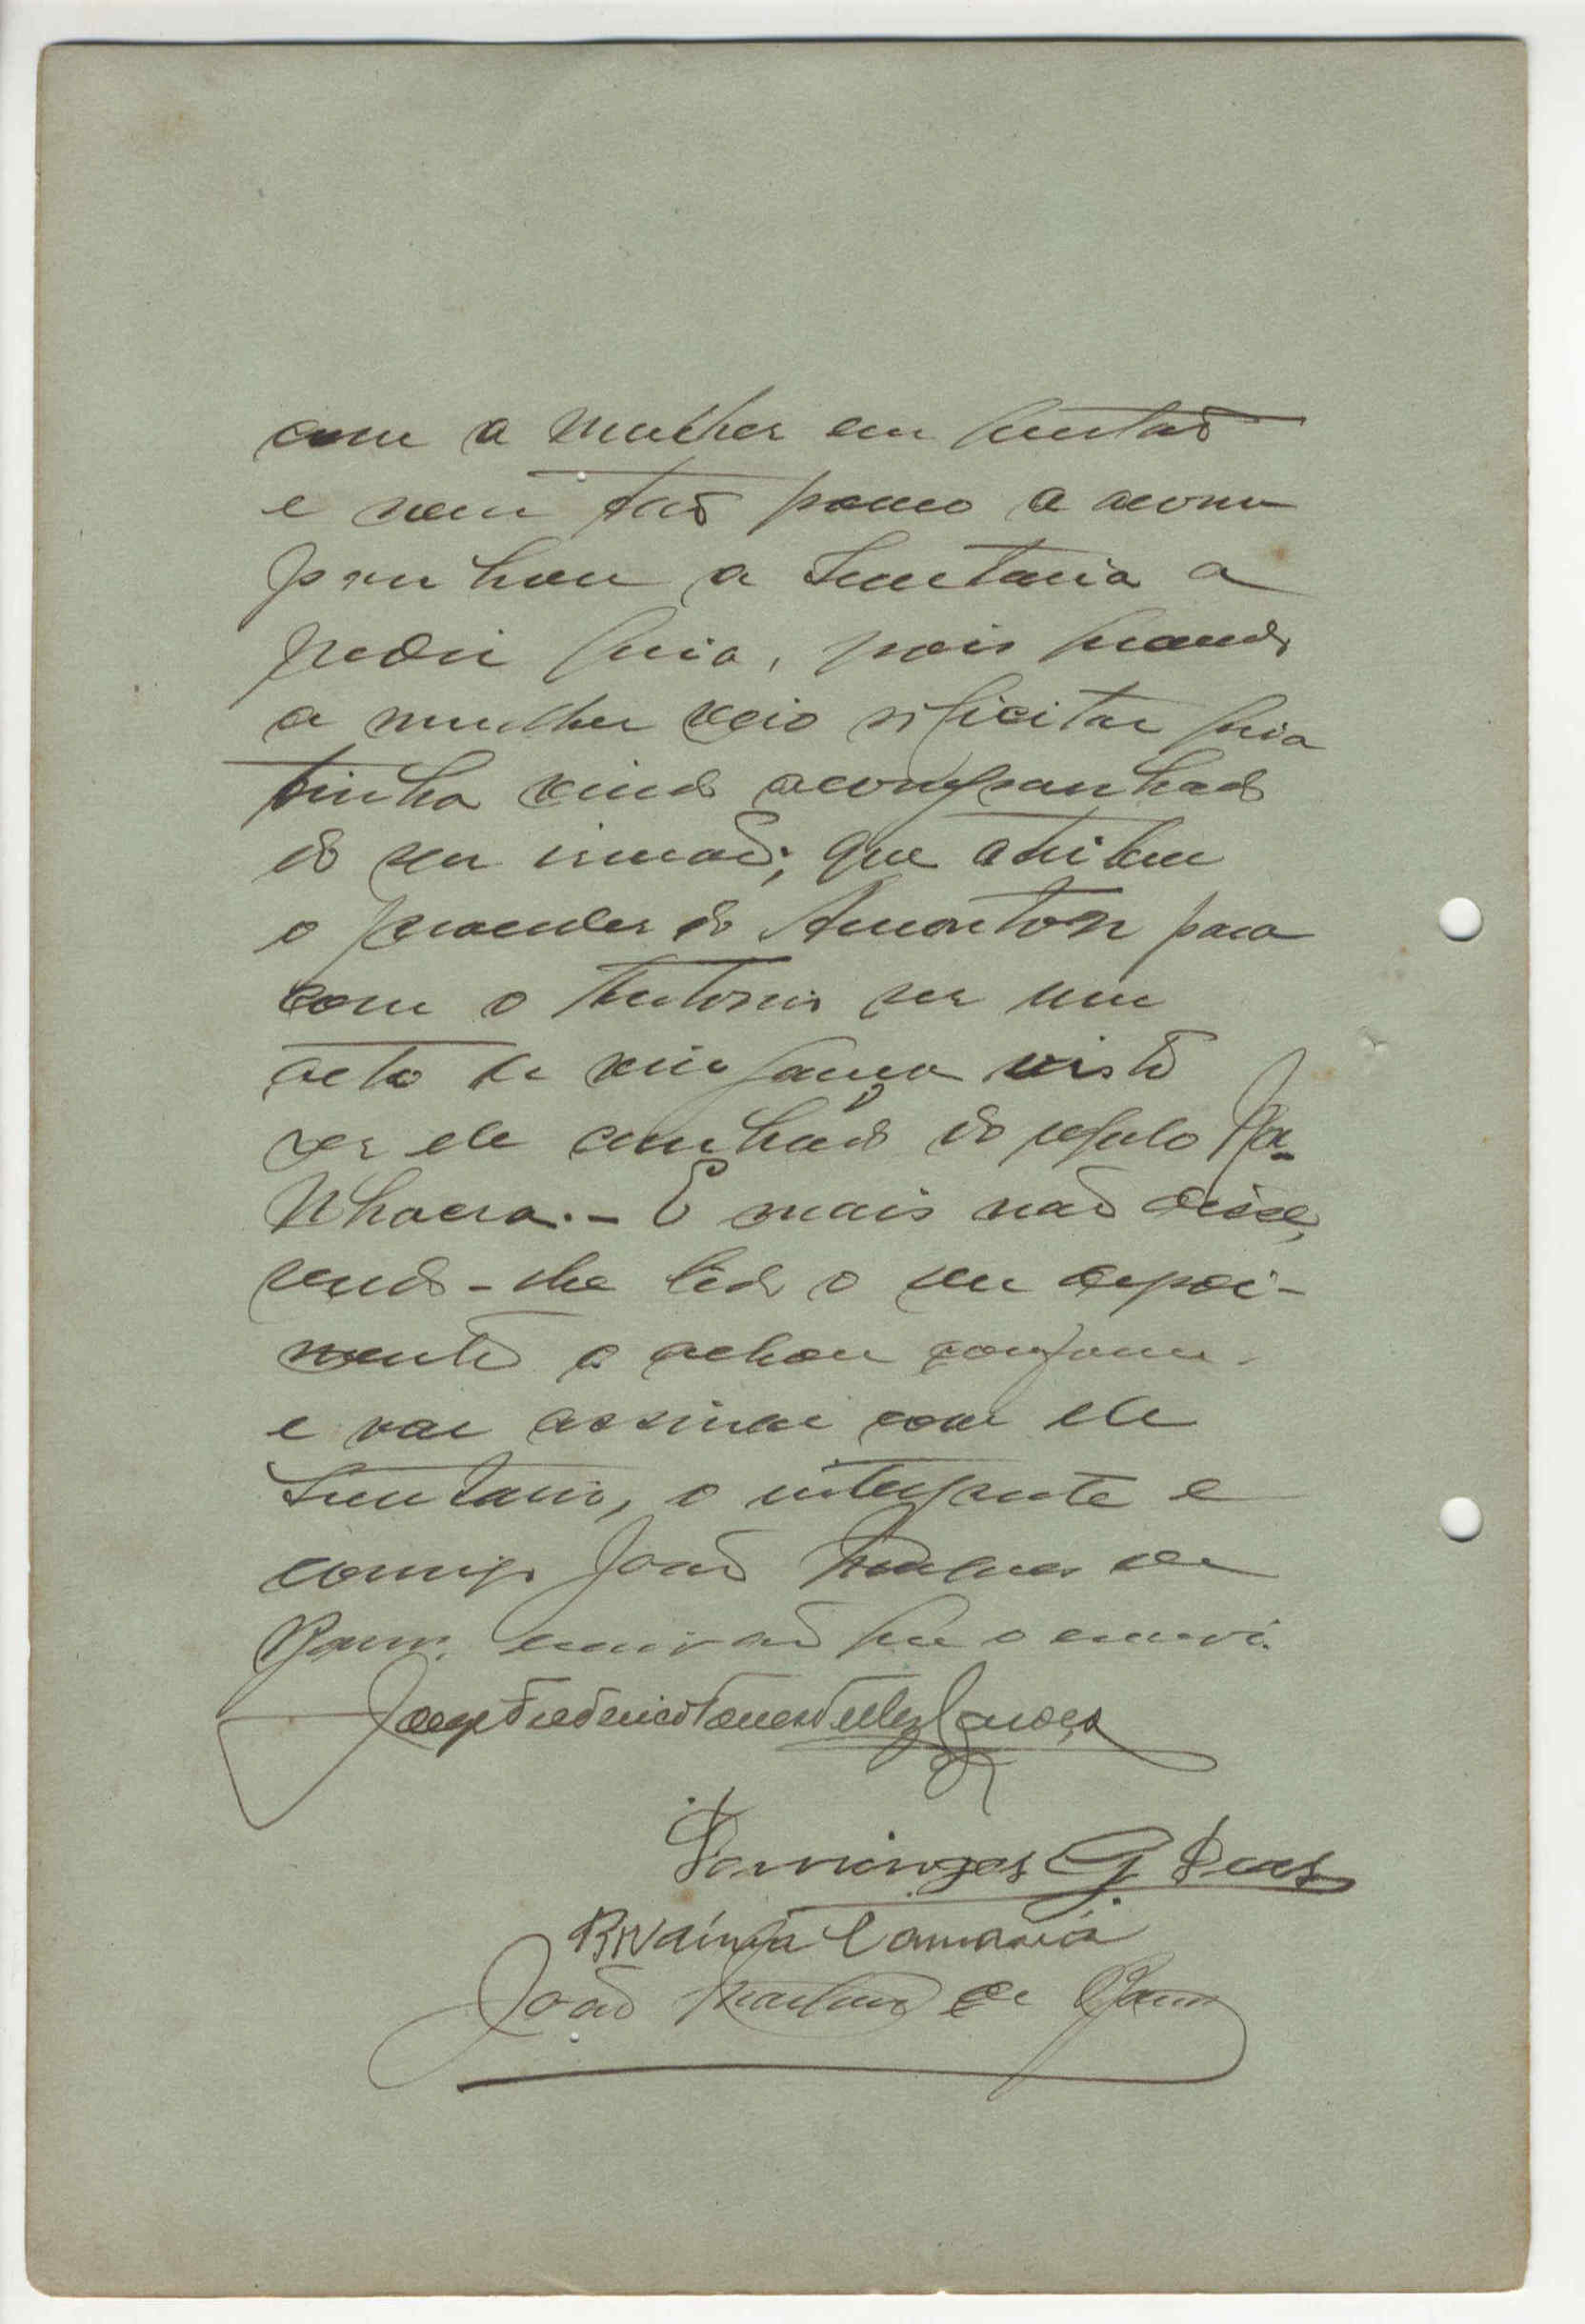 com a mulher em questão
e nem tão pouco a acom
panhou a Secretaria a
pedir guia, pois quando
a mulher veio solicitar guia
tinha vindo acompanhado
do seu irmão; que atribue
o proceder do Amonton para
com o Antonio ser um
acto de vingança visto
ser ele cunhado do regulo Ja-
Nhacra.- E mais não disse,
sendo-lhe lido o seu depoi-
mento o achou conforme
e vae assinar com ele
Secretario, o interprete e
comigo João de
escrivão que o escrevi.
Jorge Frederico Torres Velez Caroço
Domingos G Dias
Camará
João de